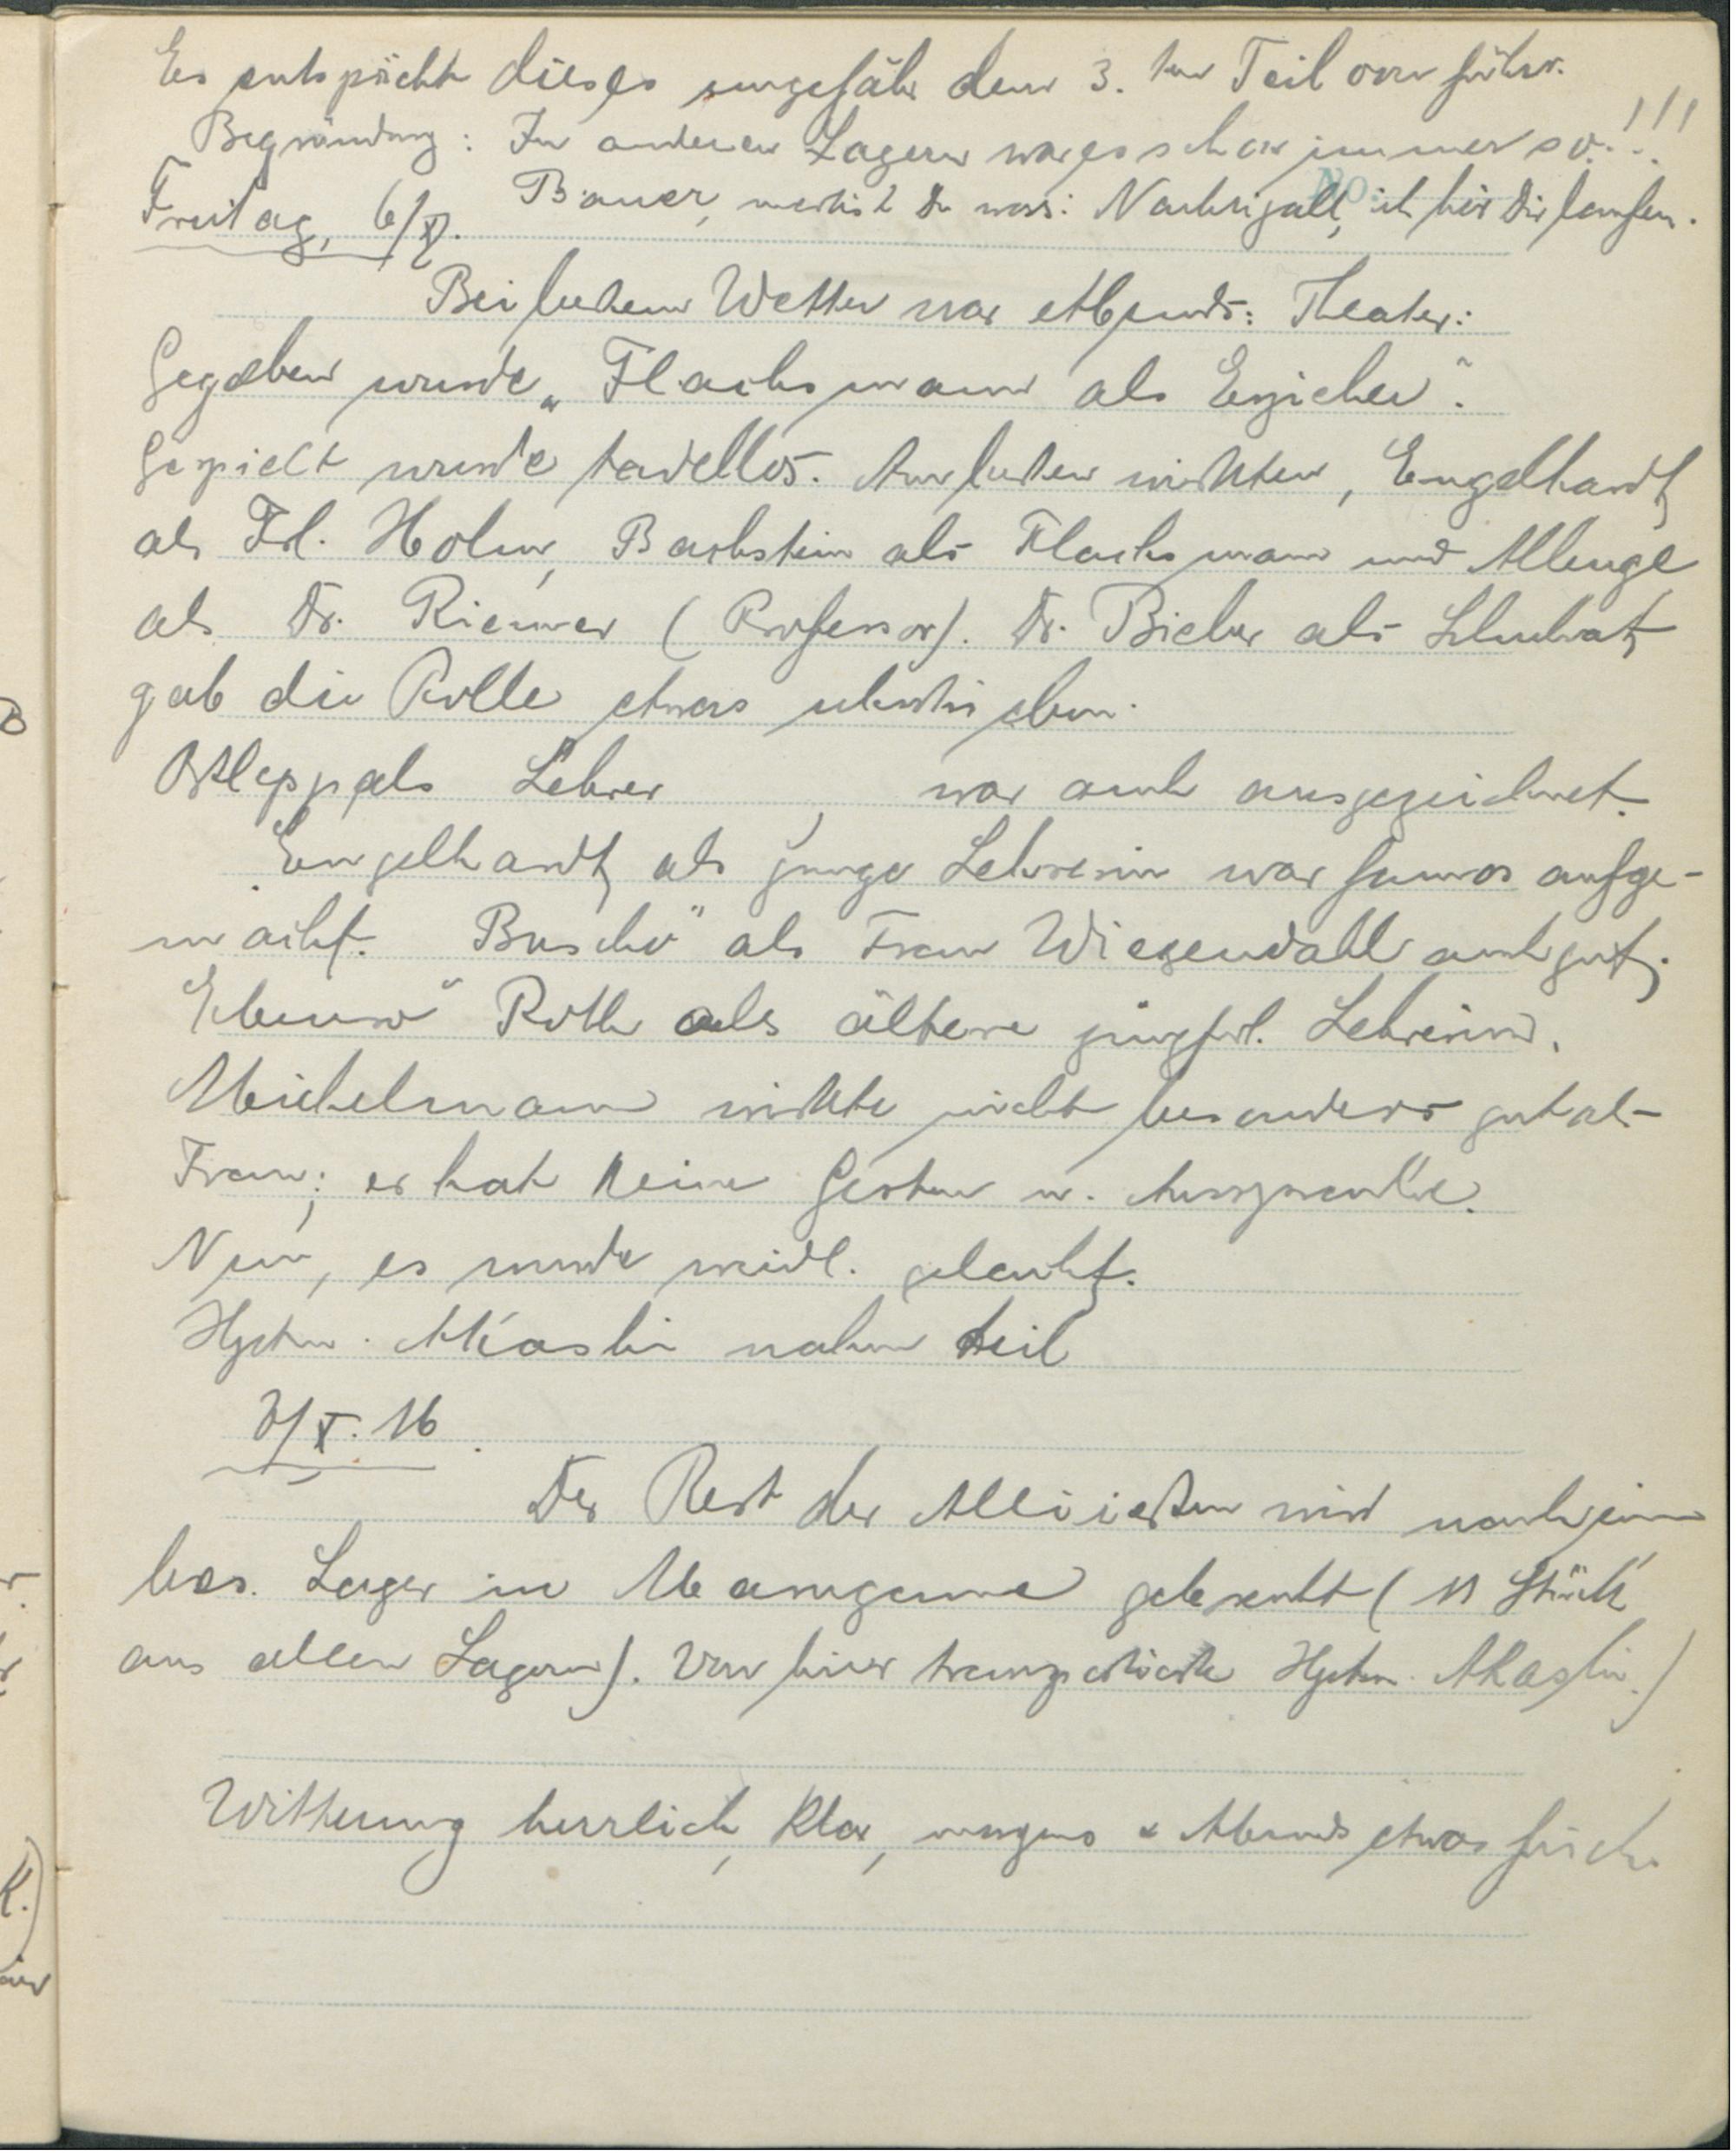 Es entspricht dieses ungefähr dem 3. ten Teil von früher.
Begründung: In anderen Lagern war es schon immer so!!!
Bauer, merkst Du was: Nachtigall, ich hör Dir laufen.
No.
Freitag, 6/X.
Bei gutem Wetter war Abends: Theater:
Gegeben wurde „Flachsmann als Erzieher".
Gespielt wurde tadellos. Am besten wirkten, Engelhardt
als Frl. Holm, Bachstein als Flachsmann und Allenge
als Dr. Riemer (Professor). Dr. Bieber als Schulrat
gab die Rolle etwas übertrieben.
als Lehrer , war auch ausgezeichnet.
Engelhardt als junge Lehrerin war famos aufge-
macht. „Buscho" als Frau Wiesendahl auch gut.
Ebenso Roth als ältere jüngferl. Lehrerin.
Meichelmann wirkte nicht besonders gut als
Frau; er hat keine Gesten u. Aussprache.
Nun, es wurde weidl. gelacht.
Hptm. Akashi nahm teil
7/X. 16
Der Rest der Alliierten wird nach einem
bes. Lager in gebracht (11 Stück
aus allen Lagern). Von hier transportierte Hptm. Akashi.)
Witterung herrlich, klar, morgens & Abends etwas frisch.